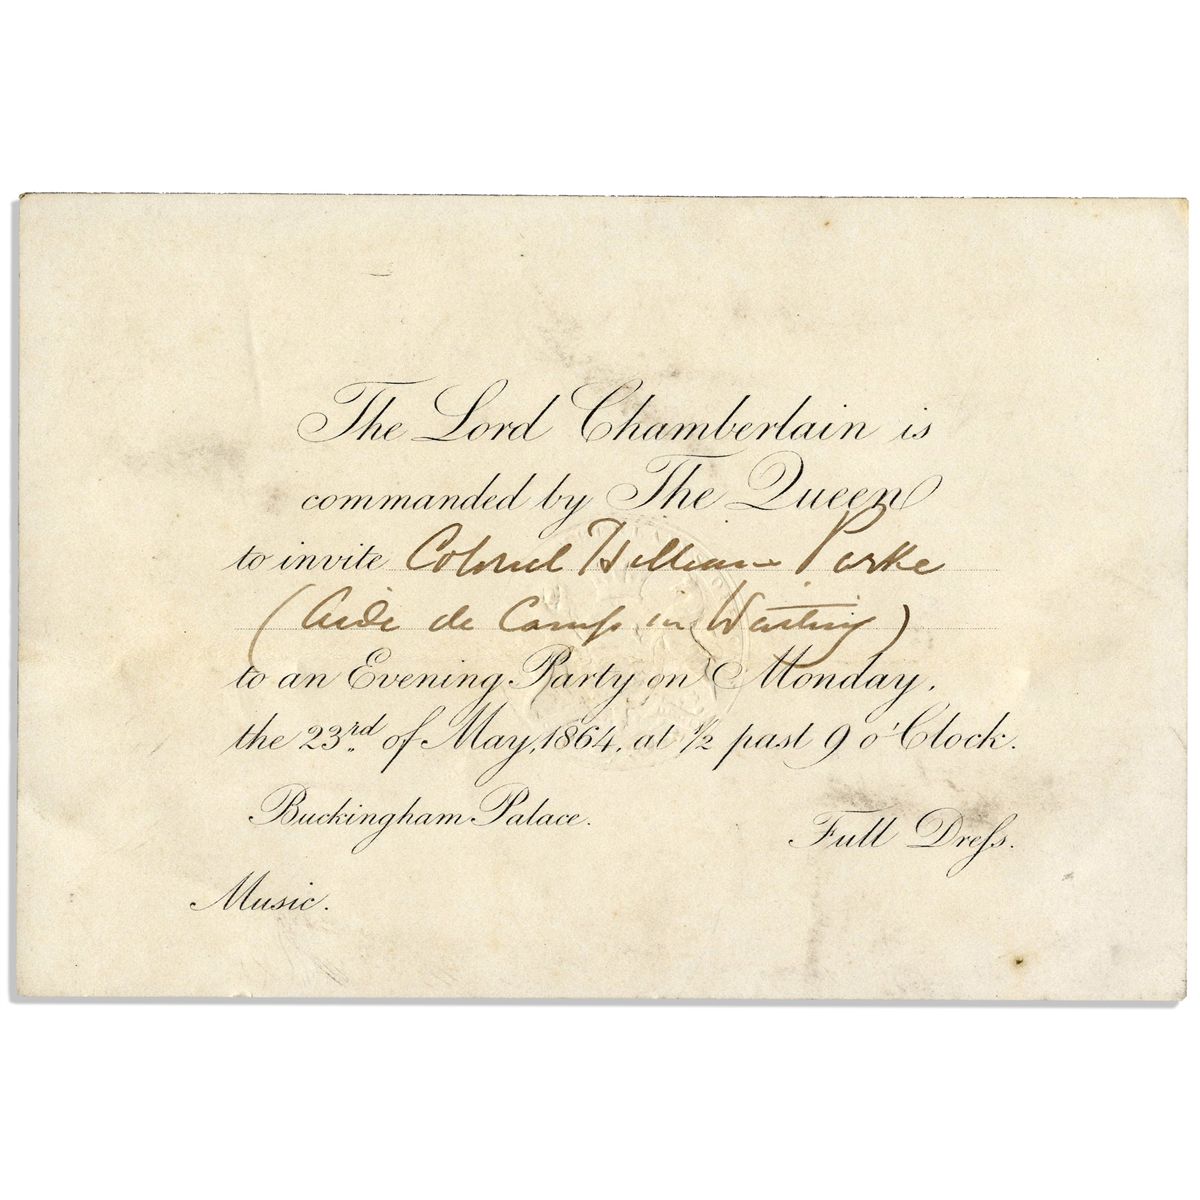 The Lord Chamberlain is
commanded by The Queen
to invite Colonel William Parke
(Aide de Camp in Waiting)
to an Evening Party on Monday,
the 23rd of May, 1864, at 1/2 past 9 o'Clock.
Buckingham Palace.
Full Dreſs.
Music.